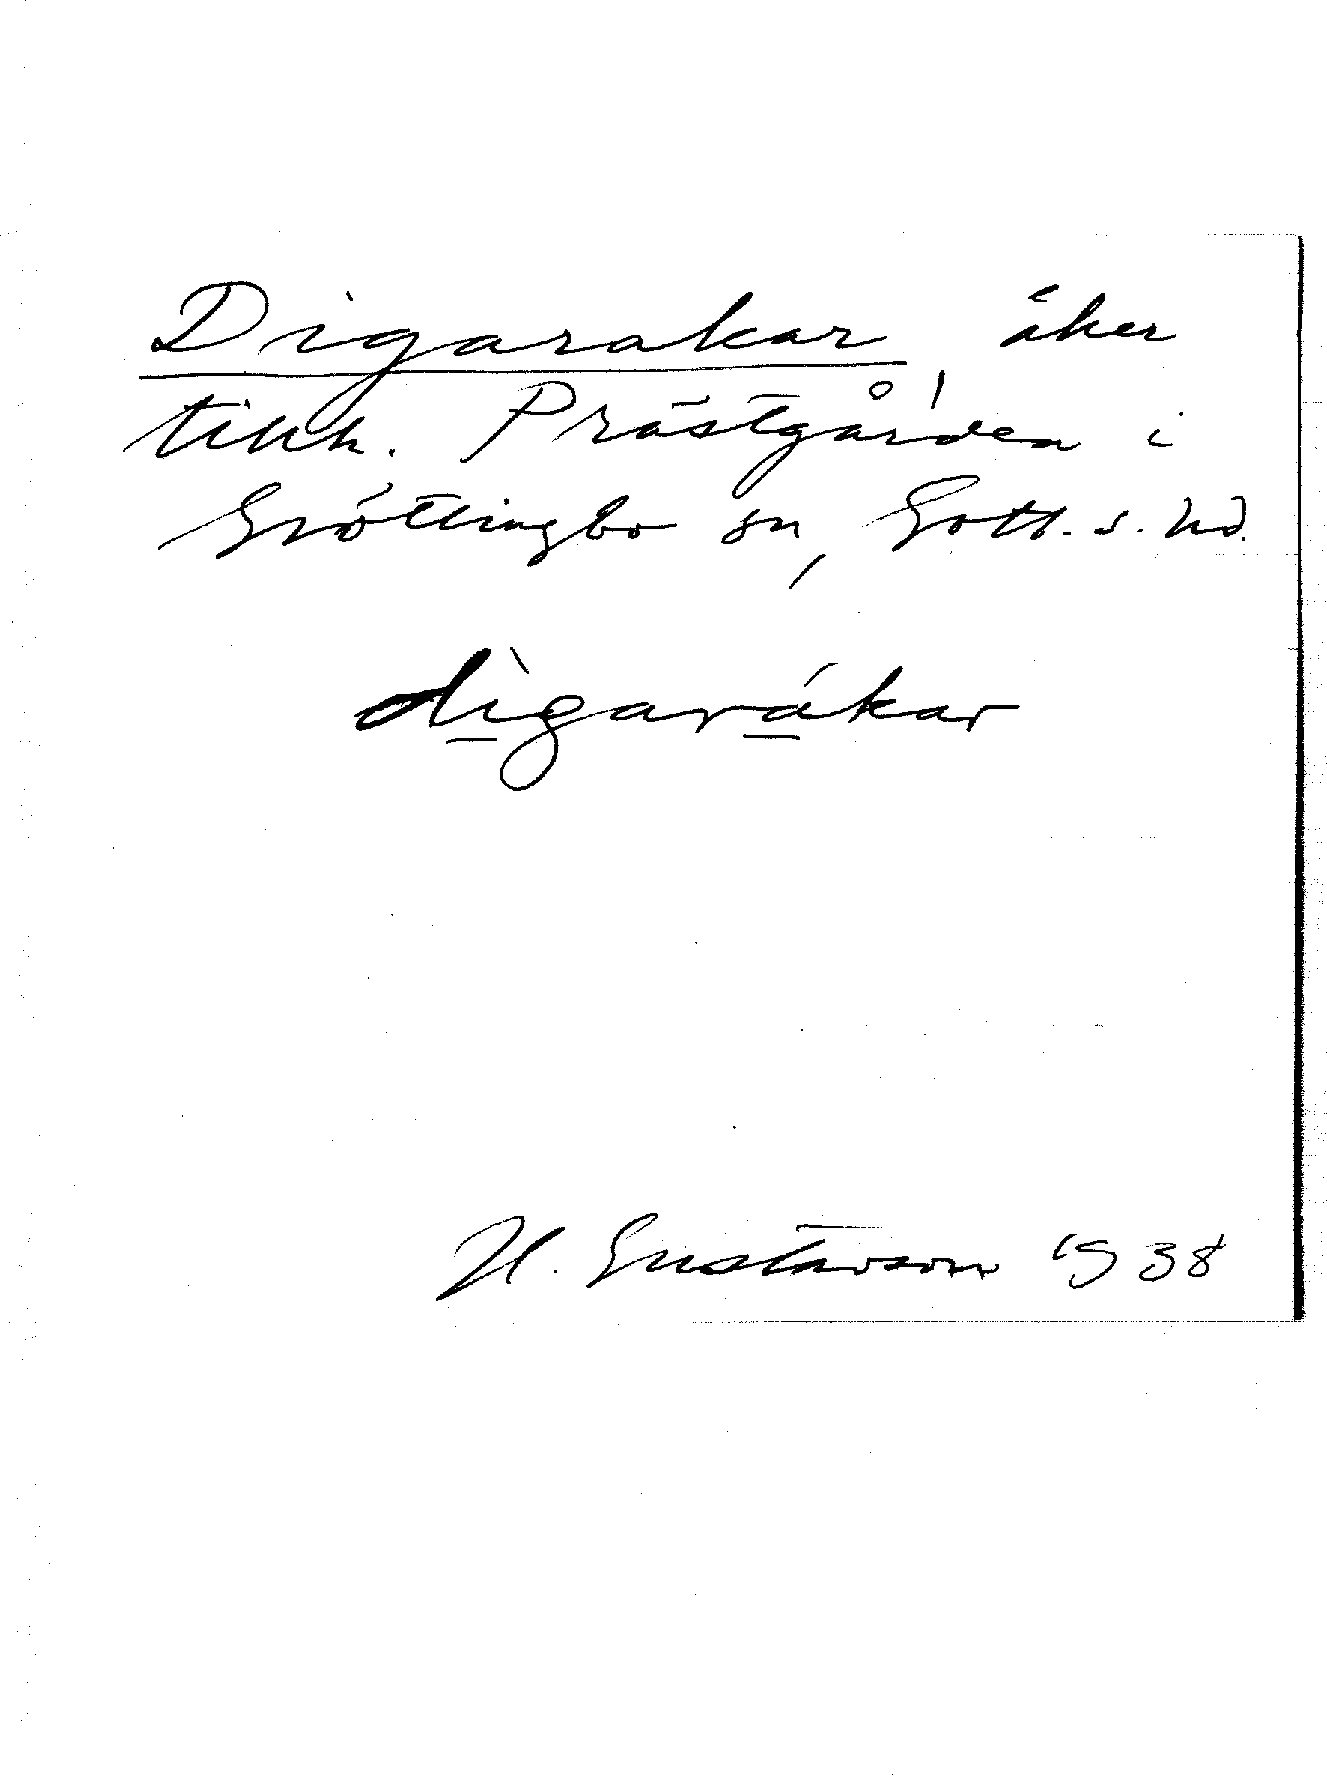 Digarakar, åker
tillh. Prästgården i
Grötlingbo sn, Gotl. s. hd.
dìgarákar
H. Gustavson 1938